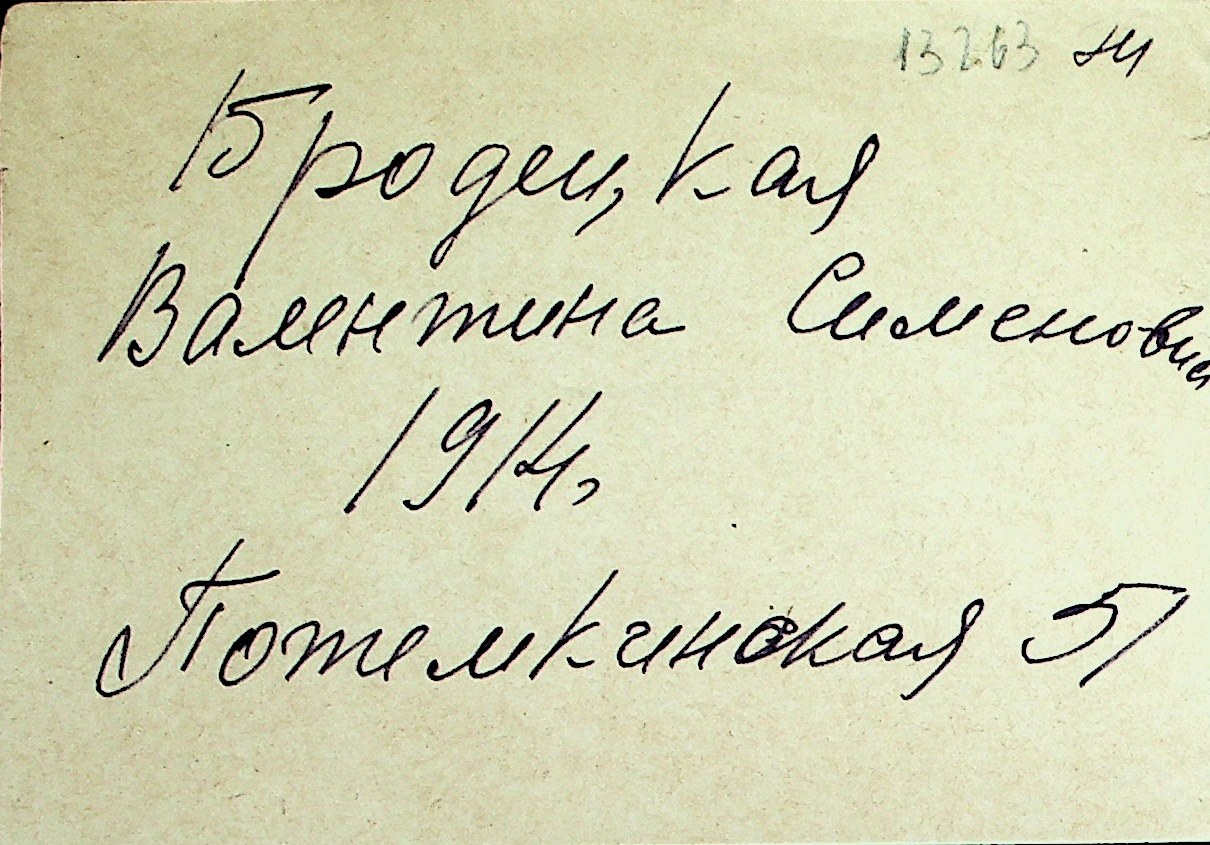 13263
Бродецкая
Валентина Сименовна
1914,
Потемкинская 51